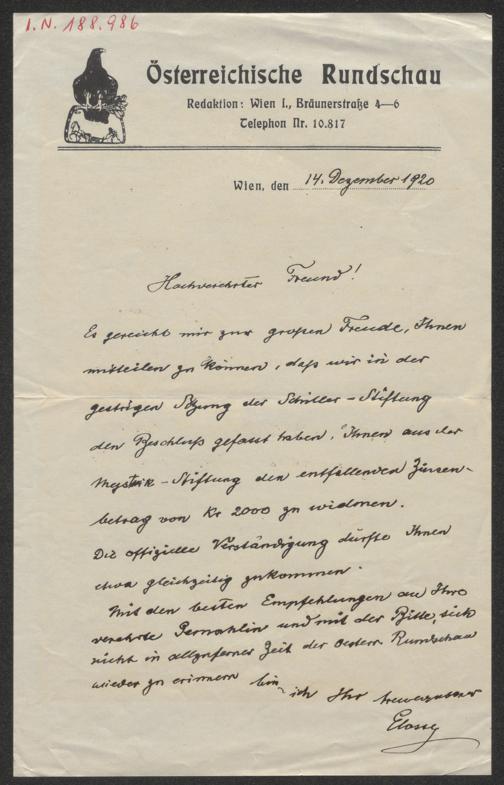 I.N. 188.986
Österreichische Rundschau
Redaktion: Wien I., Bräunerstraße 4—6
Telephon Nr. 10.817
Wien, den 14. Dezember 1920
Hochverehrter Freund!
Es gereicht mir zur großen Freude, Ihnen
mitteilen zu können, daß wir in der
gestrigen Sitzung der Schiller-Stiftung
den Beschluß gefasst haben, Ihnen aus der
-Stiftung den entfallenden Zinsen-
betrag von Kr 2000 zu widmen.
Die offizielle Verständigung dürfte Ihnen
etwa gleichzeitig zukommen.
Mit den besten Empfehlungen an Ihre
verehrte Gemahlin und mit der Bitte, sich
nicht in allzuferner Zeit der Oesterr. Rundschau
wieder zu erinnern bin ich Ihr treuergebener
Glossy